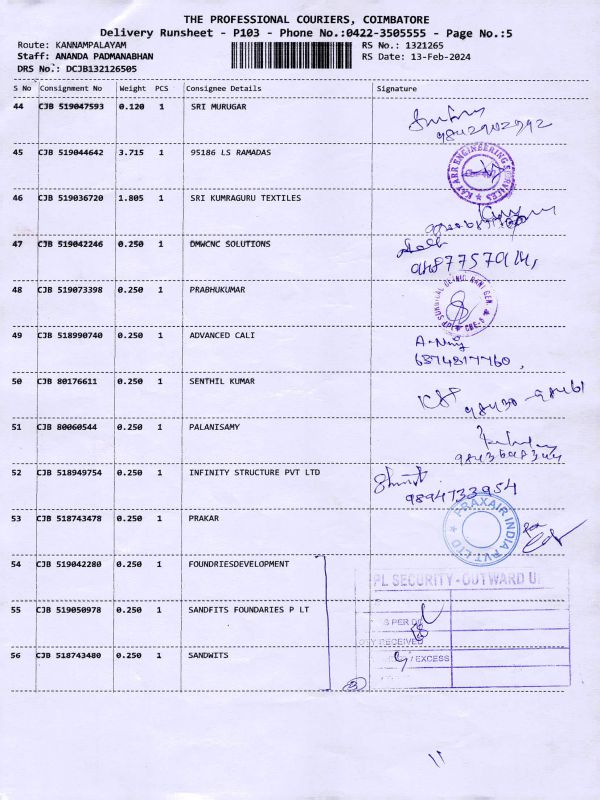 THE PROFESSIONAL COURIERS, COIMBATORE
Delivery Runsheet - P103 - Phone No.:0422-3505555 - Page No.:5
Route: KANNAMPALAYAM
RS No.: 1321265
Staff: ANANDA PADMANABHAN
RS Date: 13-Feb-2024
DRS No.: DCJB132126505
S No Consignment No Weight PCS Consignee Details Signature
44 CJB 519047593 0.120 1 SRI MURUGAR
9842902992
45 CJB 519044642 3.715 1 95186 LS RAMADAS
KATARR ENGINEERING SERVICES
46 CJB 519036720 1.805 1 SRI KUMRAGURU TEXTILES
47 CJB 519042246 0.250 1 DMWCNC SOLUTIONS
48 CJB 519073398 0.250 1 PRABHUKUMAR
49 CJB 518990740 0.250 1 ADVANCED CALI
6374817760,
50 CJB 80176611 0.250 1 SENTHIL KUMAR
98430-98461
51 CJB 80060544 0.250 1 PALANISAMY
52 CJB 518949754 0.250 1 INFINITY STRUCTURE PVT LTD
9894733954
53 CJB 518743478 0.250 1 PRAKAR
PRAXAIR INDIA PVT LTD
54 CJB 519042280 0.250 1 FOUNDRIESDEVELOPMENT
PL SECURITY - OUTWARD
55 CJB 519050978 0.250 1 SANDFITS FOUNDARIES P LT
S PER
QTY RECEIVED
56 CJB 518743480 0.250 1 SANDWITS
/ EXCESS